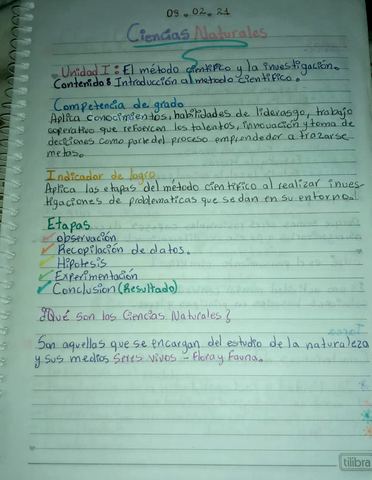 09.02.21
Ciencias Naturales
Unidad I: El método científico y la investigación.
Contenido: Introducción al metodo científico.
Competencia de grado
Aplica conocimientos, habilidades de liderasgo, trabajo
cooperativo que refuercen los talentos, innovación y toma de
decisiones como parte del proceso emprendedor a trazarse
metas.
Indicador de logro
Aplica las etapas del método científico al realizar inves-
tigaciones de problematicas que se dan en su entorno.
Etapas
observación
Recopilación de datos.
Hipotesis
Experimentación
Conclusion (Resultado)
¿Qué son las Ciencias Naturales?
Son aquellas que se encargan del estudio de la naturaleza
y sus medios seres vivos - flora y fauna.
tilibra